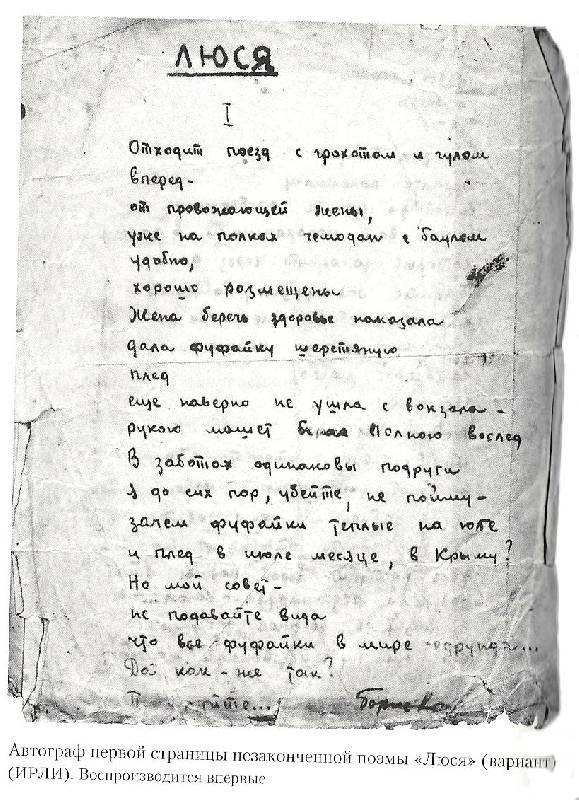 ЛЮСЯ
I
Отходит поезд с грохотом и гулом
вперед-
от провожающей жены,
уже на полках чемодан с баулом
удобно,
хорошо размещены.
Жена беречь здоровье наказала
дала фуфайку шерстяную
плед
еще наверно не ушла с вокзала -
рукою машет вослед
В заботах одинаковы подруги
Я до сих пор, убейте, не пойму -
зачем фуфайки теплые на юге
и плед в июле месяце, в Крыму?
Но мой совет -
не подавайте вида
что все фуфайки в мире
Да как-же так?
Автограф первой страницы незаконченной поэмы «Люся» (вариант)
(ИРЛИ). Воспроизводится впервые